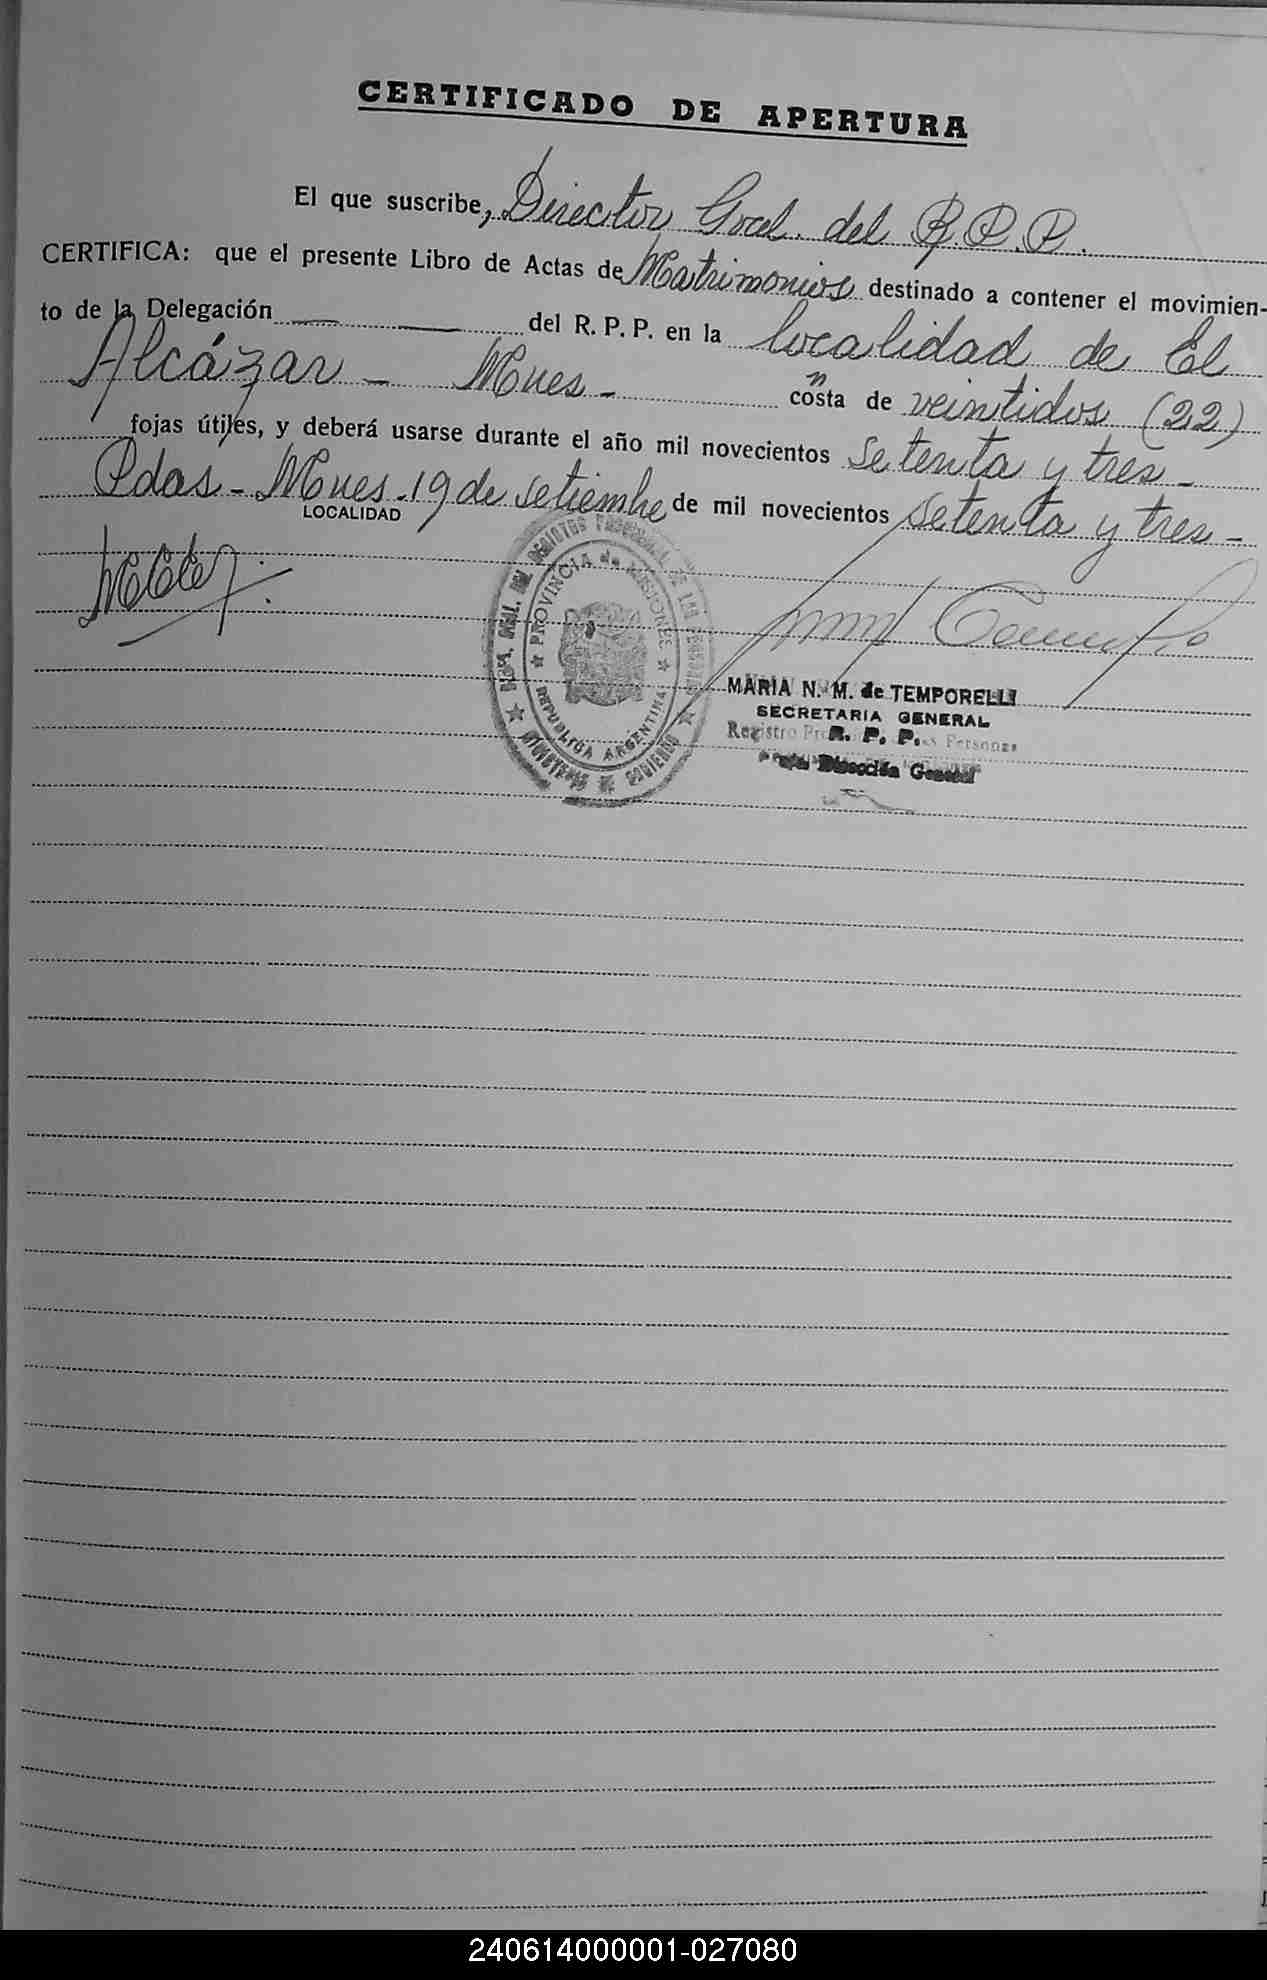 CERTIFICADO DE APERTURA
El que suscribe, Director Gral. del R.P.P.
CERTIFICA: que el presente Libro de Actas de Matrimonios destinado a contener el movimien-
to de la Delegación del R. P. P. en la localidad de El
Alcázar - Mnes - costa de veintidos (22)
n
fojas útiles, y deberá usarse durante el año mil novecientos setenta y tres -
Pdas - Mnes. 19 de setiembre de mil novecientos setenta y tres -
LOCALIDAD
PROVINCIA de MISIONES
REPUBLICA ARGENTINA
MINISTERIO DE GOBIERNO
MARIA N. M. de TEMPORELLI
SECRETARIA GENERAL
R. P. P.
Dirección General
240614000001-027080